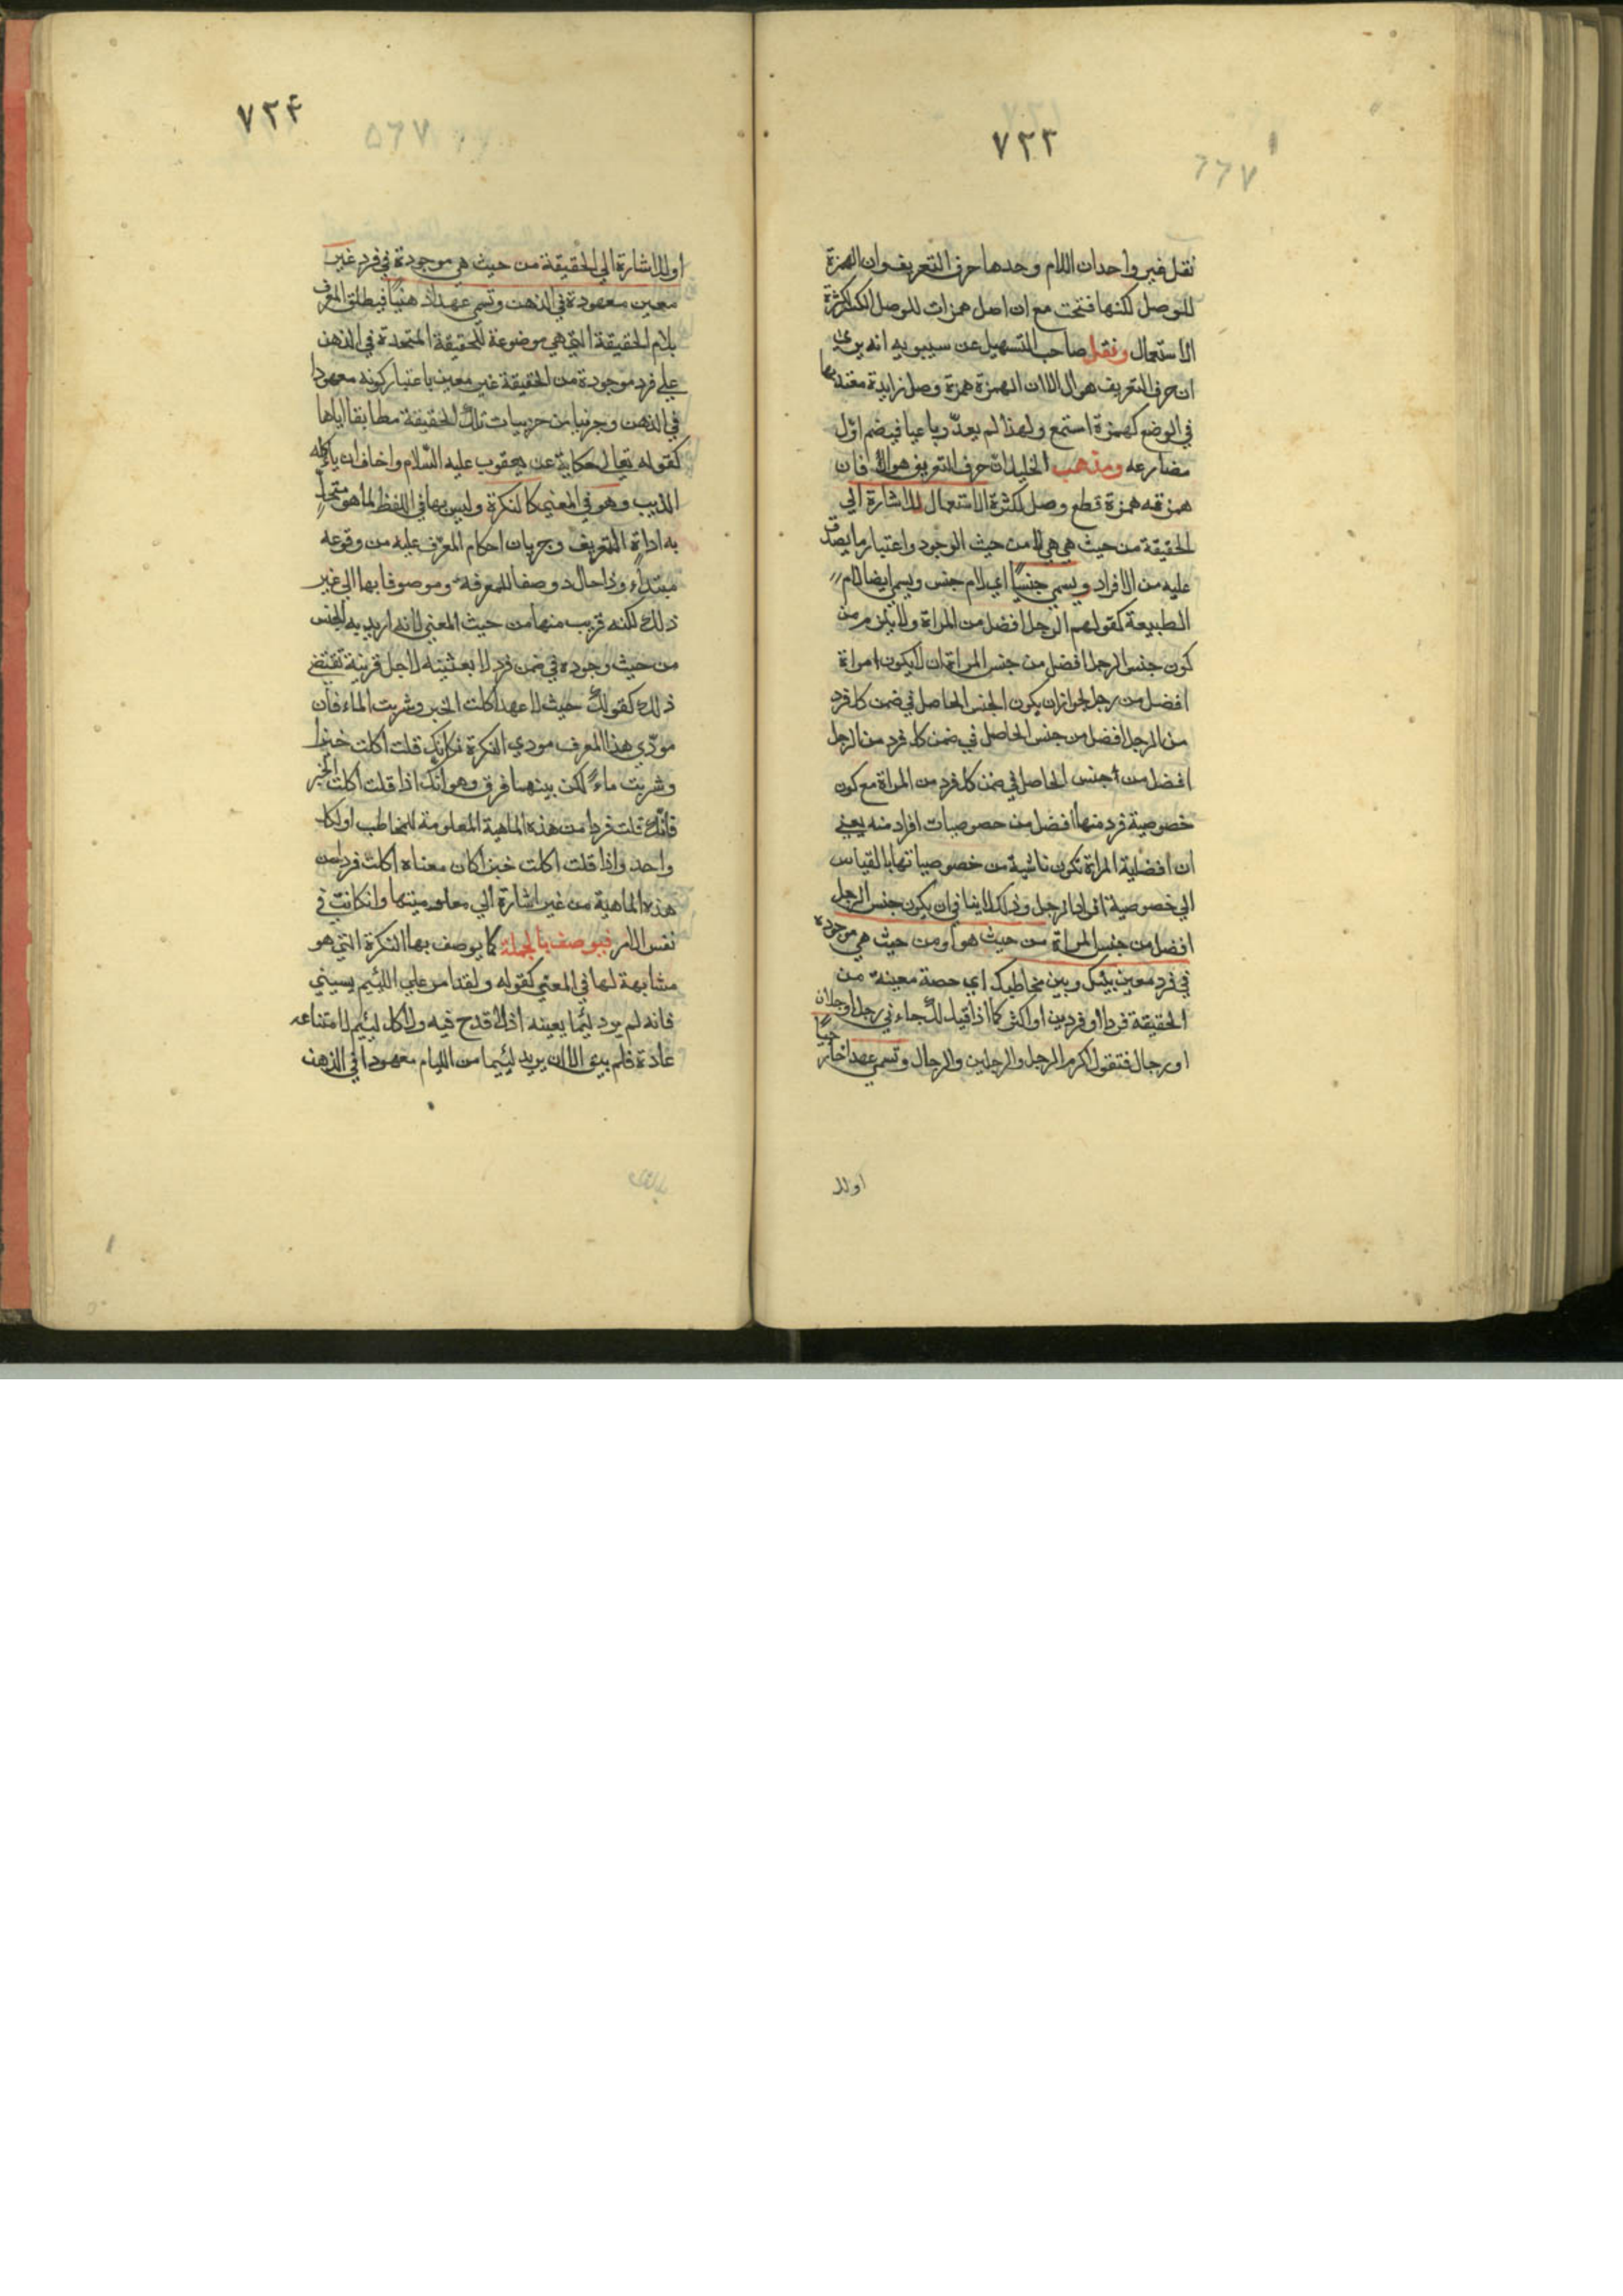 ٧٢٣
٦٦٧
نقل غير واحد ان اللام وحدها حرف التعريف وان الهمزة
للوصل لكنها فتحت مع ان اصل همزات للوصل الكسر لكثرة
الاستعمال ونقل صاحب التسهيل عن سيبويه انه يرى
ان حرف التعريف هو ال الا ان الهمزة همزة وصل زايدة معتد بها
في الوضع كهمزة استمع ولهذا لم يعد رباعيا فيضم اول
مضارعه ومذهب الخليل ان حرف التعريف هو ال فان
همزته همزة قطع وصل لكثرة الاستعمال للاشارة الي
الحقيقة من حيث هي هي لا من حيث الوجود واعتبار ما يصدق
عليه من الافراد ويسمي جنسيا اي لام جنس ويسمي ايضا لام
الطبيعة كقولهم الرجل افضل من المراة ولا يلزم من
كون جنس الرجل افضل من جنس المراة ان لا يكون امراة
افضل من رجل لجواز ان يكون الجنس الحاصل في ضمن كل فرد
من الرجل افضل من جنس الحاصل في ضمن كل فرد من الرجل
افضل من جنس الحاصل في ضمن كل فرد من المراة مع كون
خصوصية فرد منها افضل من حصوصيات افراد منه يعني
ان افضلية المراة تكون ناشية من خصوصياتها بالقياس
الي خصوصية افراد الرجل وذلك لا ينافي ان يكون جنس الرجل
افضل من جنس المراة من حيث هو او من حيث هي موجودة
في فرد معين بينك وبين مخاطبك اي حصة معينة من
الحقيقة فردا او فردين او اكثر كما اذا قيل لك جاءني رجل او رجلان
او رجال فتقول اكرم الرجل والرجلين والرجال وتسمي عهدا خارجيا
اولل
٧٢٤
٥٦٧
اولل اشارة الي الحقيقة من حيث هي موجودة في فرد غير
معين معهودة في الذهن وتسمي عهدا ذهنيا فيطلق المعرف
بلام الحقيقة التي هي موضوعة للحقيقة المتحدة في الذهن
علي فرد موجودة من الحقيقة غير معين باعتبار كونه معهودا
في الذهن وجزئيا من جزييات تلك الحقيقة مطابقا اياها
كقوله تعالى حكاية عن يعقوب عليه السلام واخاف ان ياكله
الذيب وهو في المعني كالنكرة وليس بها في اللفظ لما هو متحل
به اداة التعريف وجريان احكام المعرف عليه من وقوعه
مبتداء وذا حال د وصفا للمعرفة وموصوفا بها الي غير
ذلك لكنه قريب منها من حيث المعني لانه اريد به الجنس
من حيث وجوده في ضمن فرد لا بعينه لاجل قرينة تقتضي
ذلك كقولك حيث لا عهد اكلت الخبز وشربت الماء فان
مودي هذا المعرف مودي النكرة فكانك قلت اكلت خبزا
وشربت ماء لكن بينهما فرق وهو انك اذا قلت اكلت الخبز
فانك قلت فردا من هذه الماهية المعلومة للمخاطب او لكل
واحد واذا قلت اكلت خبزا كان معناه اكلت فردا من
هذه الماهية من غير اشارة الي معلوميتها وان كانت في
نفس الامر فيوصف بالجملة كما يوصف بها النكرة التي هو
مشابهة لها في المعني كقوله ولقد امر علي اللئيم يسبني
فانه لم يرد لئيما بعينه اذ لا قدح فيه ولا كل لئيم لامتناعه
عادة فلم يبق الا ان يريد لئيما من الليام معهودا في الذهن